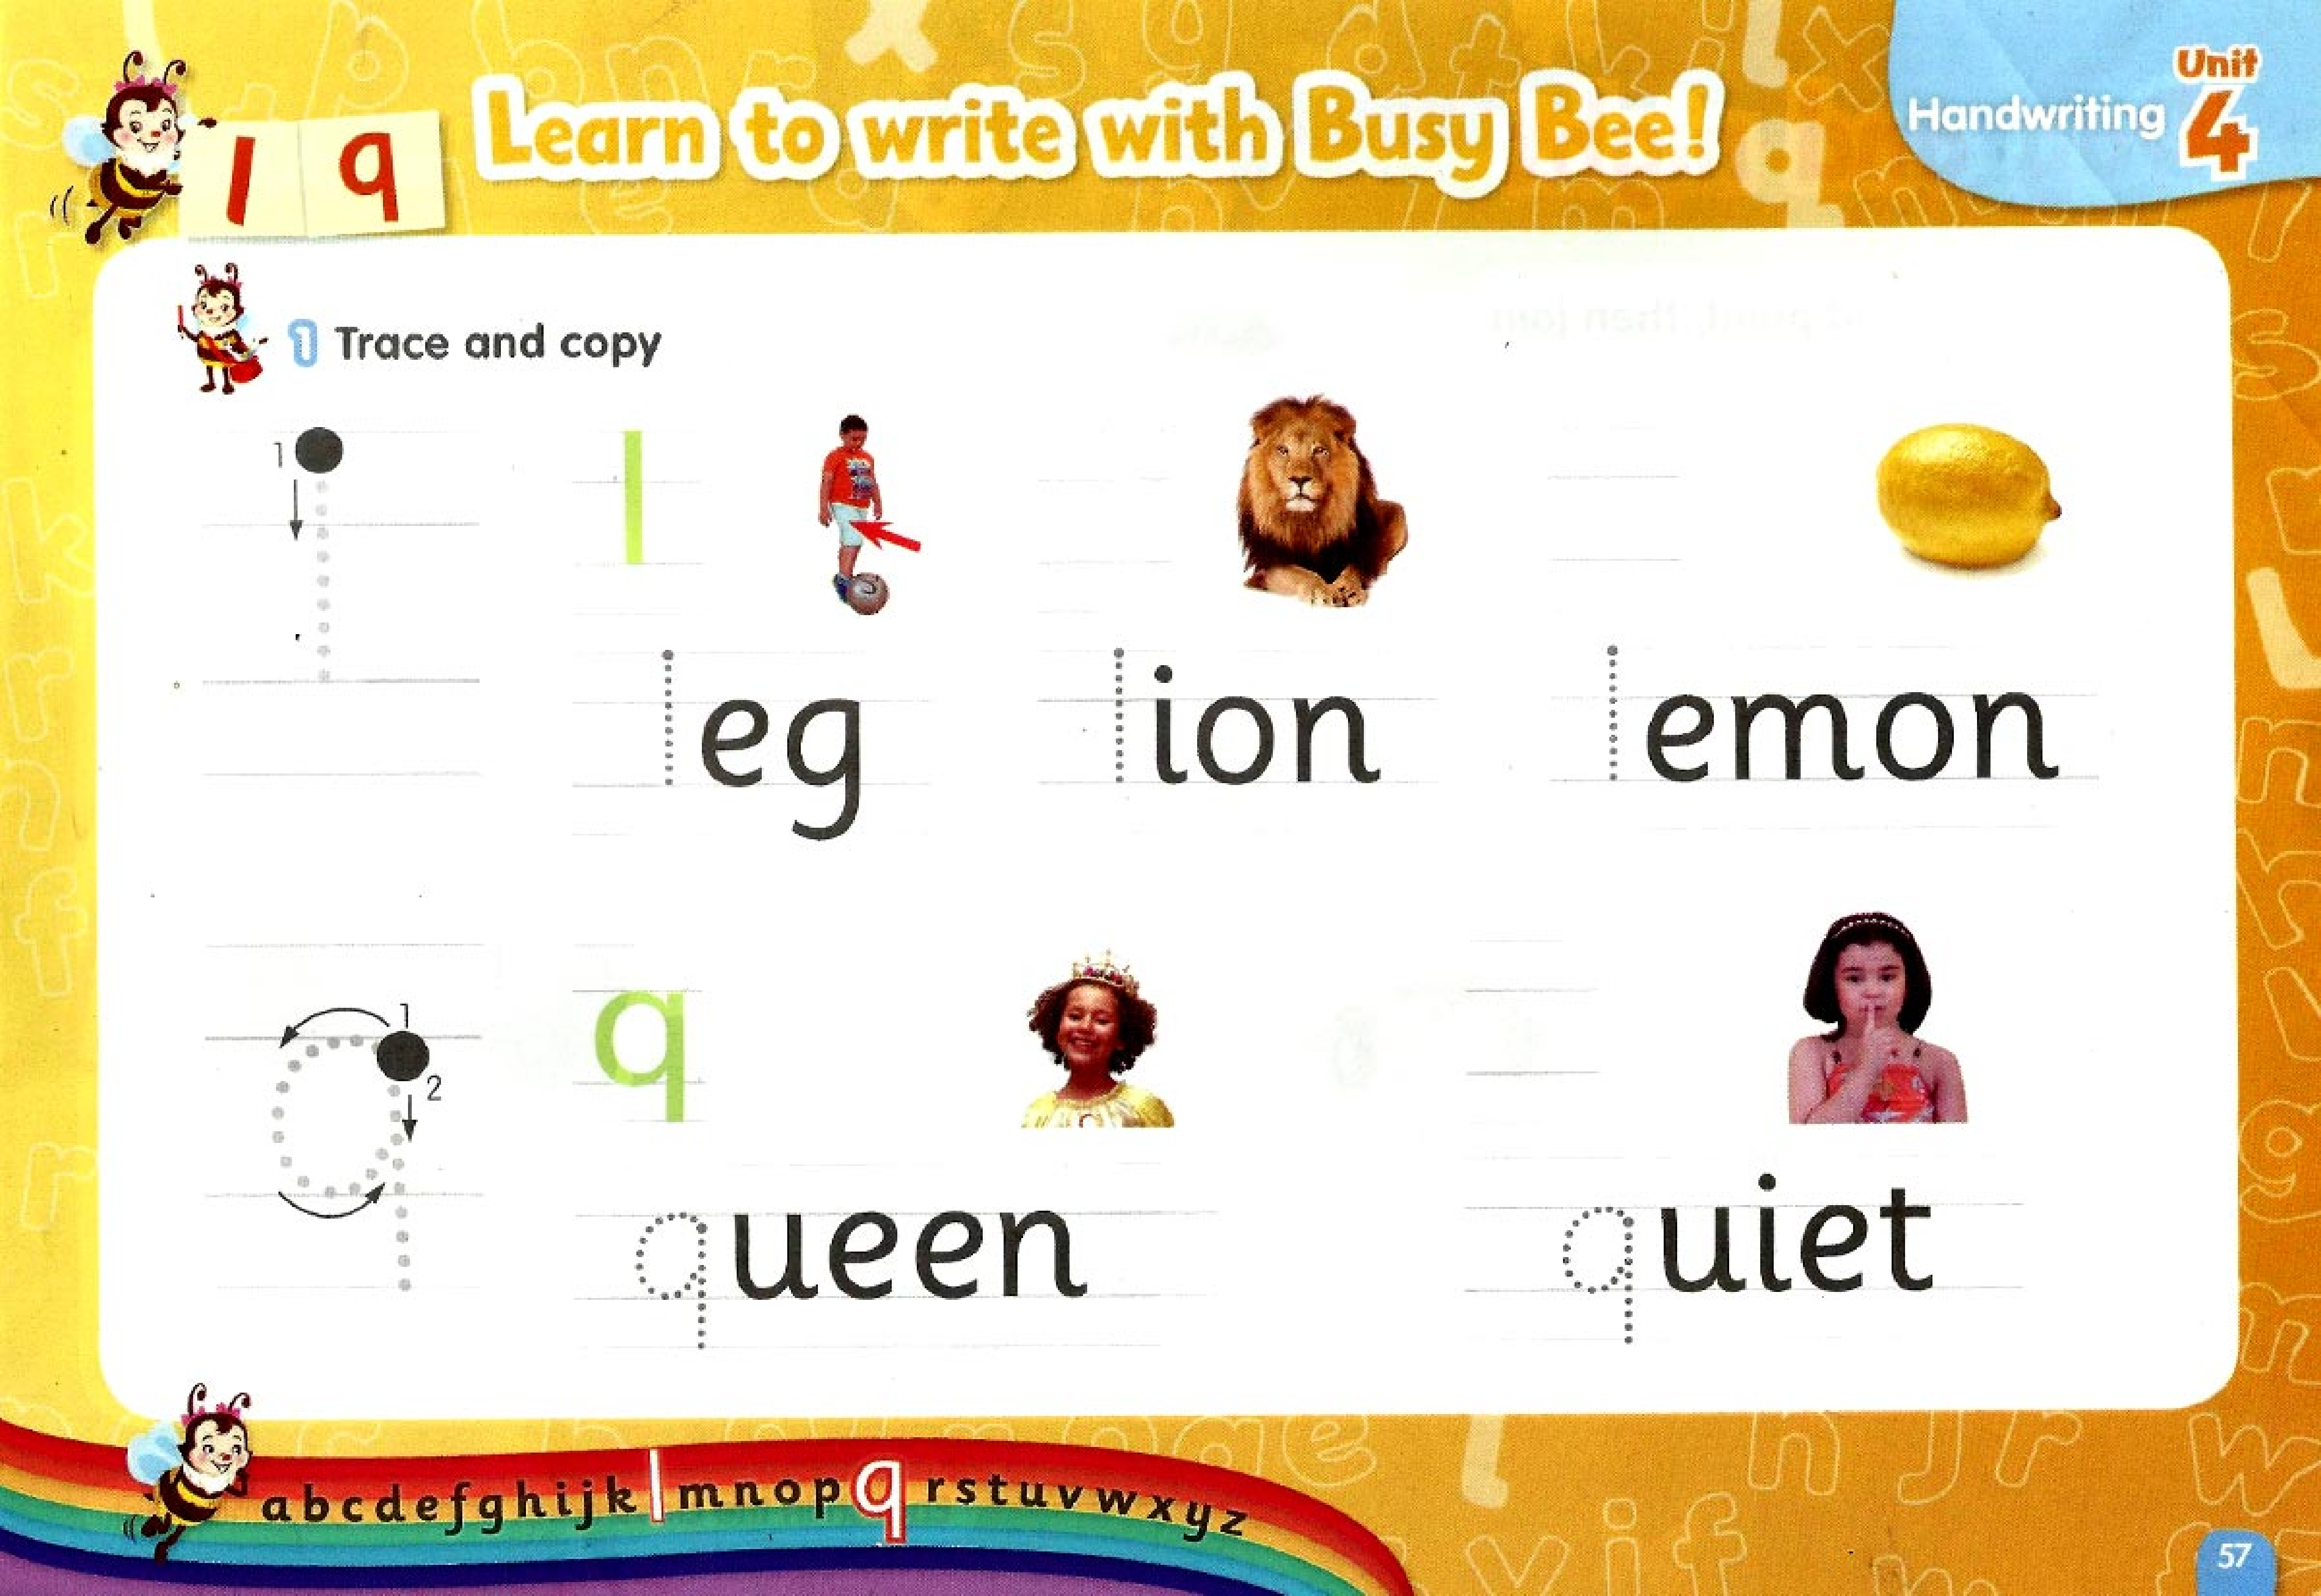 l q
Learn to write with Busy Bee!
Handwriting
Unit
4
1 Trace and copy
1
l
leg
lion
lemon
1
2
q
queen
quiet
abcdefghijklmnopqrstuvwxyz
57